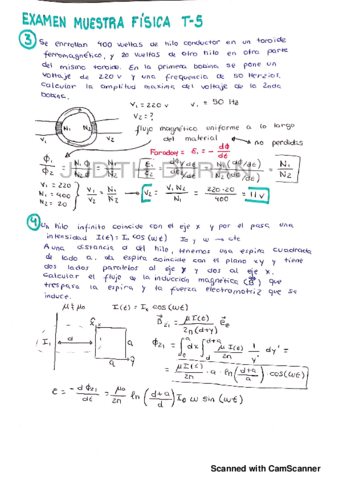 EXAMEN MUESTRA FÍSICA T-5
3 Se enrollan 400 vueltas de hilo conductor en un toroide
ferromagnético, y 20 vueltas de otro hilo en otra parte
del mismo toroide. En la primera bobina se pone un
voltaje de 220 V y una frecuencia de 50 Herzios.
Calcular la amplitud maxima del voltaje de la 2nda
bobina.
V₁ = 220 V    ν₁ = 50 Hz
V₂ = ?
N₁ N₂
V₁ V₂
flujo magnético uniforme a lo largo
del material
no perdidas
Faraday = ε₁ = - dΦ/dt
Φ₁/Φ₂ = N₁Φ/N₂Φ
N₁/N₂
V₁ = 220
N₁ = 400
N₂ = 20
V₁/V₂ = N₁/N₂
V₂ = V₁N₂/N₁ = 220·20/400 = 11 V
4 Un hilo infinito coincide con el eje x y por el pasa una
intensidad I(t) = I₀ cos(ωt)   I₀ y ω → cte
A una distancia d del hilo, tenemos una espira cuadrada
de lado a. La espira coincide con el plano xy y tiene
dos lados paralelos al eje y y dos al eje x.
Calcular el flujo de la inducción magnética (B) que
traspasa la espira y la fuerza electromotriz que se
induce.
I(t) = I₀ cos(ωt)
I₁ d a a
ln(d+a/a) · cos(ωt)
ln(d+a/d) I₀ ω sin(ωt)
Scanned with CamScanner